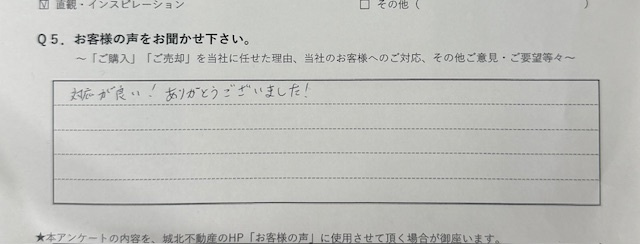 ☑ 直観・インスピレーション　□ その他（　）
Ｑ５．お客様の声をお聞かせ下さい。
～「ご購入」「ご売却」を当社に任せた理由、当社のお客様へのご対応、その他ご意見・ご要望等々～
対応が良い！ありがとうございました！
★本アンケートの内容を、城北不動産のHP「お客様の声」に使用させて頂く場合が御座います。